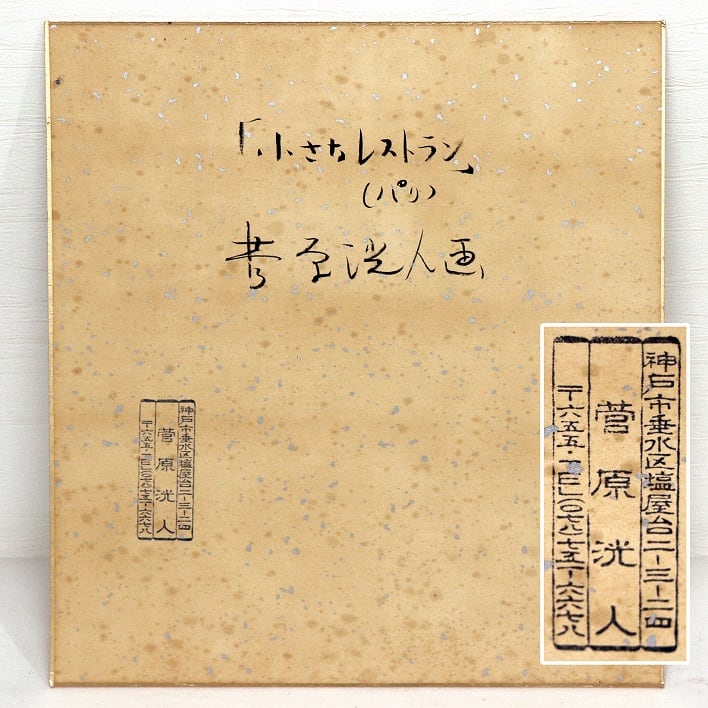 「小さなレストラン」
(パリ)
菅原洸人画
神戸市垂水区塩屋台二ー三ー二四
菅原洸人
〒六五五・TEL〇七八七五一ー六六七八
神戸市垂水区塩屋台二ー三ー二四
菅原洸人
〒六五五・TEL〇七八七五一ー六六七八